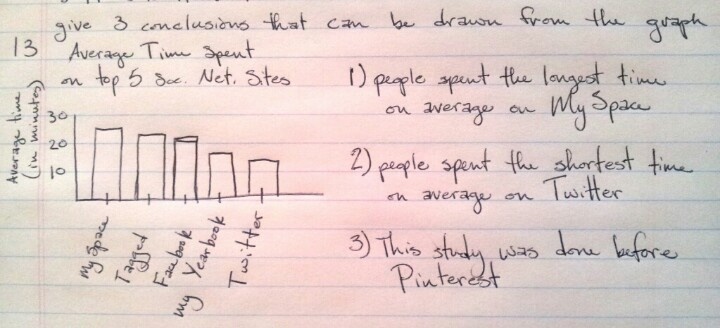 give 3 conclusions that can be drawn from the graph
13
Average Time Spent
on top 5 Soc. Net. Sites
Average time
(in minutes)
30
20
10
My Space
Tagged
Facebook
my Yearbook
Twitter
1) people spent the longest time
on average on My Space
2) people spent the shortest time
on average on Twitter
3) This study was done before
Pinterest